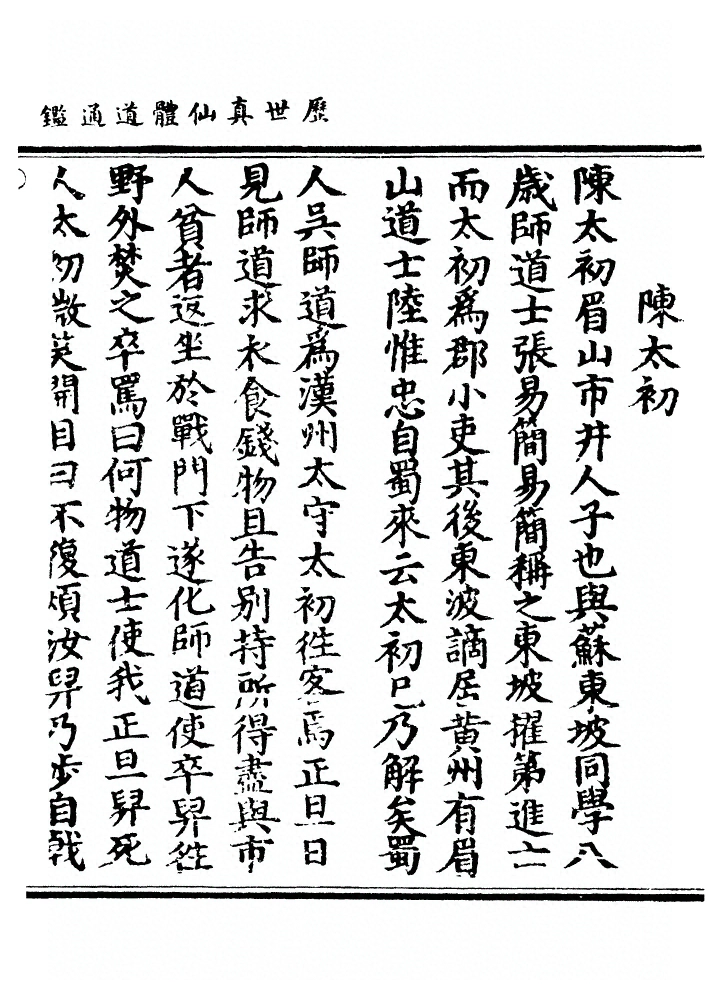 歷世真仙體道通鑑
陳太初
陳太初眉山市井人子也與蘇東坡同學八
歲師道士張易簡易簡稱之東坡擢第進士
而太初爲郡小吏其後東波謫居黃州有眉
山道士陸惟忠自蜀來云太初已乃解矣蜀
人吳師道爲漢州太守太初徃客焉正旦日
見師道求衣食錢物且告別持所得盡與市
人貧者返坐於戰門下遂化師道使卒舁徃
野外焚之卒罵曰何物道士使我正旦舁死
人太初微笑開目曰不復煩汝舁乃步自戟